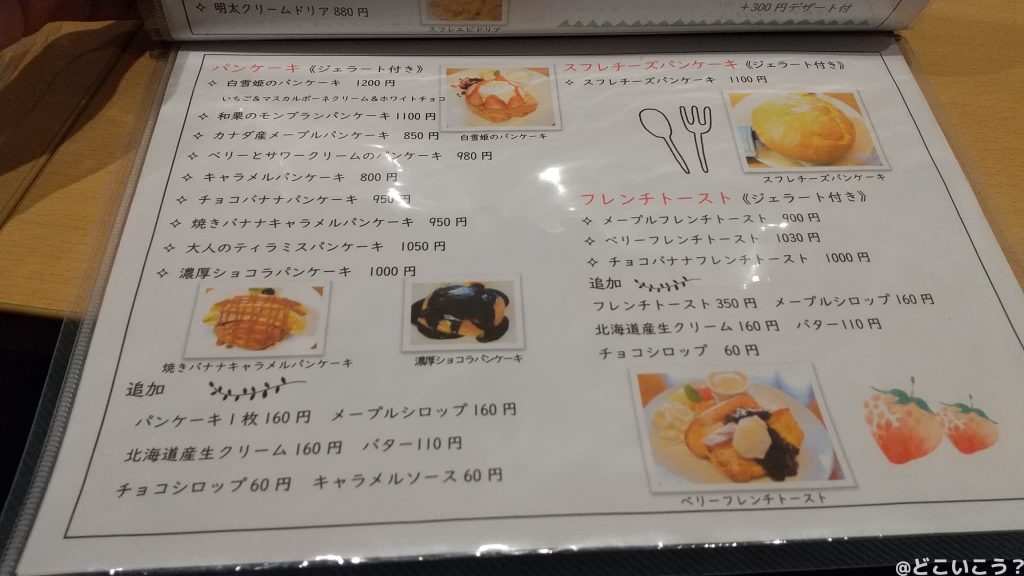 ✧ 明太クリームドリア 880円
スフレエビドリア
+300円デザート付
パンケーキ 《ジェラート付き》
✧ 白雪姫のパンケーキ 1200円
いちご&マスカルポーネクリーム&ホワイトチョコ
✧ 和栗のモンブランパンケーキ1100円
✧ カナダ産メープルパンケーキ 850円
✧ ベリーとサワークリームのパンケーキ 980円
✧ キャラメルパンケーキ 800円
✧ チョコバナナパンケーキ 950円
✧ 焼きバナナキャラメルパンケーキ 950円
✧ 大人のティラミスパンケーキ 1050円
✧ 濃厚ショコラパンケーキ 1000円
白雪姫のパンケーキ
焼きバナナキャラメルパンケーキ
濃厚ショコラパンケーキ
追加
パンケーキ1枚160円 メープルシロップ160円
北海道産生クリーム160円 バター110円
チョコシロップ60円 キャラメルソース60円
スフレチーズパンケーキ《ジェラート付き》
✧ スフレチーズパンケーキ 1100円
スフレチーズパンケーキ
フレンチトースト《ジェラート付き》
✧ メープルフレンチトースト 900円
✧ ベリーフレンチトースト 1030円
✧ チョコバナナフレンチトースト 1000円
追加
フレンチトースト350円 メープルシロップ160円
北海道産生クリーム160円 バター110円
チョコシロップ 60円
ベリーフレンチトースト
@どこいこう?